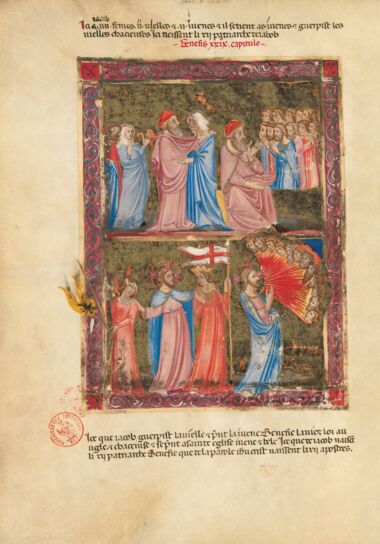 Iacob
a .iiii. femes .ii. uielles & .ii. iuenes & il se tient as iuenes & guerpist les
uielles chaceuses Ici neissent li xij patriarche de iacob
Genesis XXIX. capitulo
Ice que iacob guerpist la uielle & prist la iuene Senefie la uiez loi au
& chaceuse & se prist a sainte eglise iuene & bele Ice que de iacob naiscent
li xij patriarche Senefie que de la parole ihu crist naissent li xij apostres.